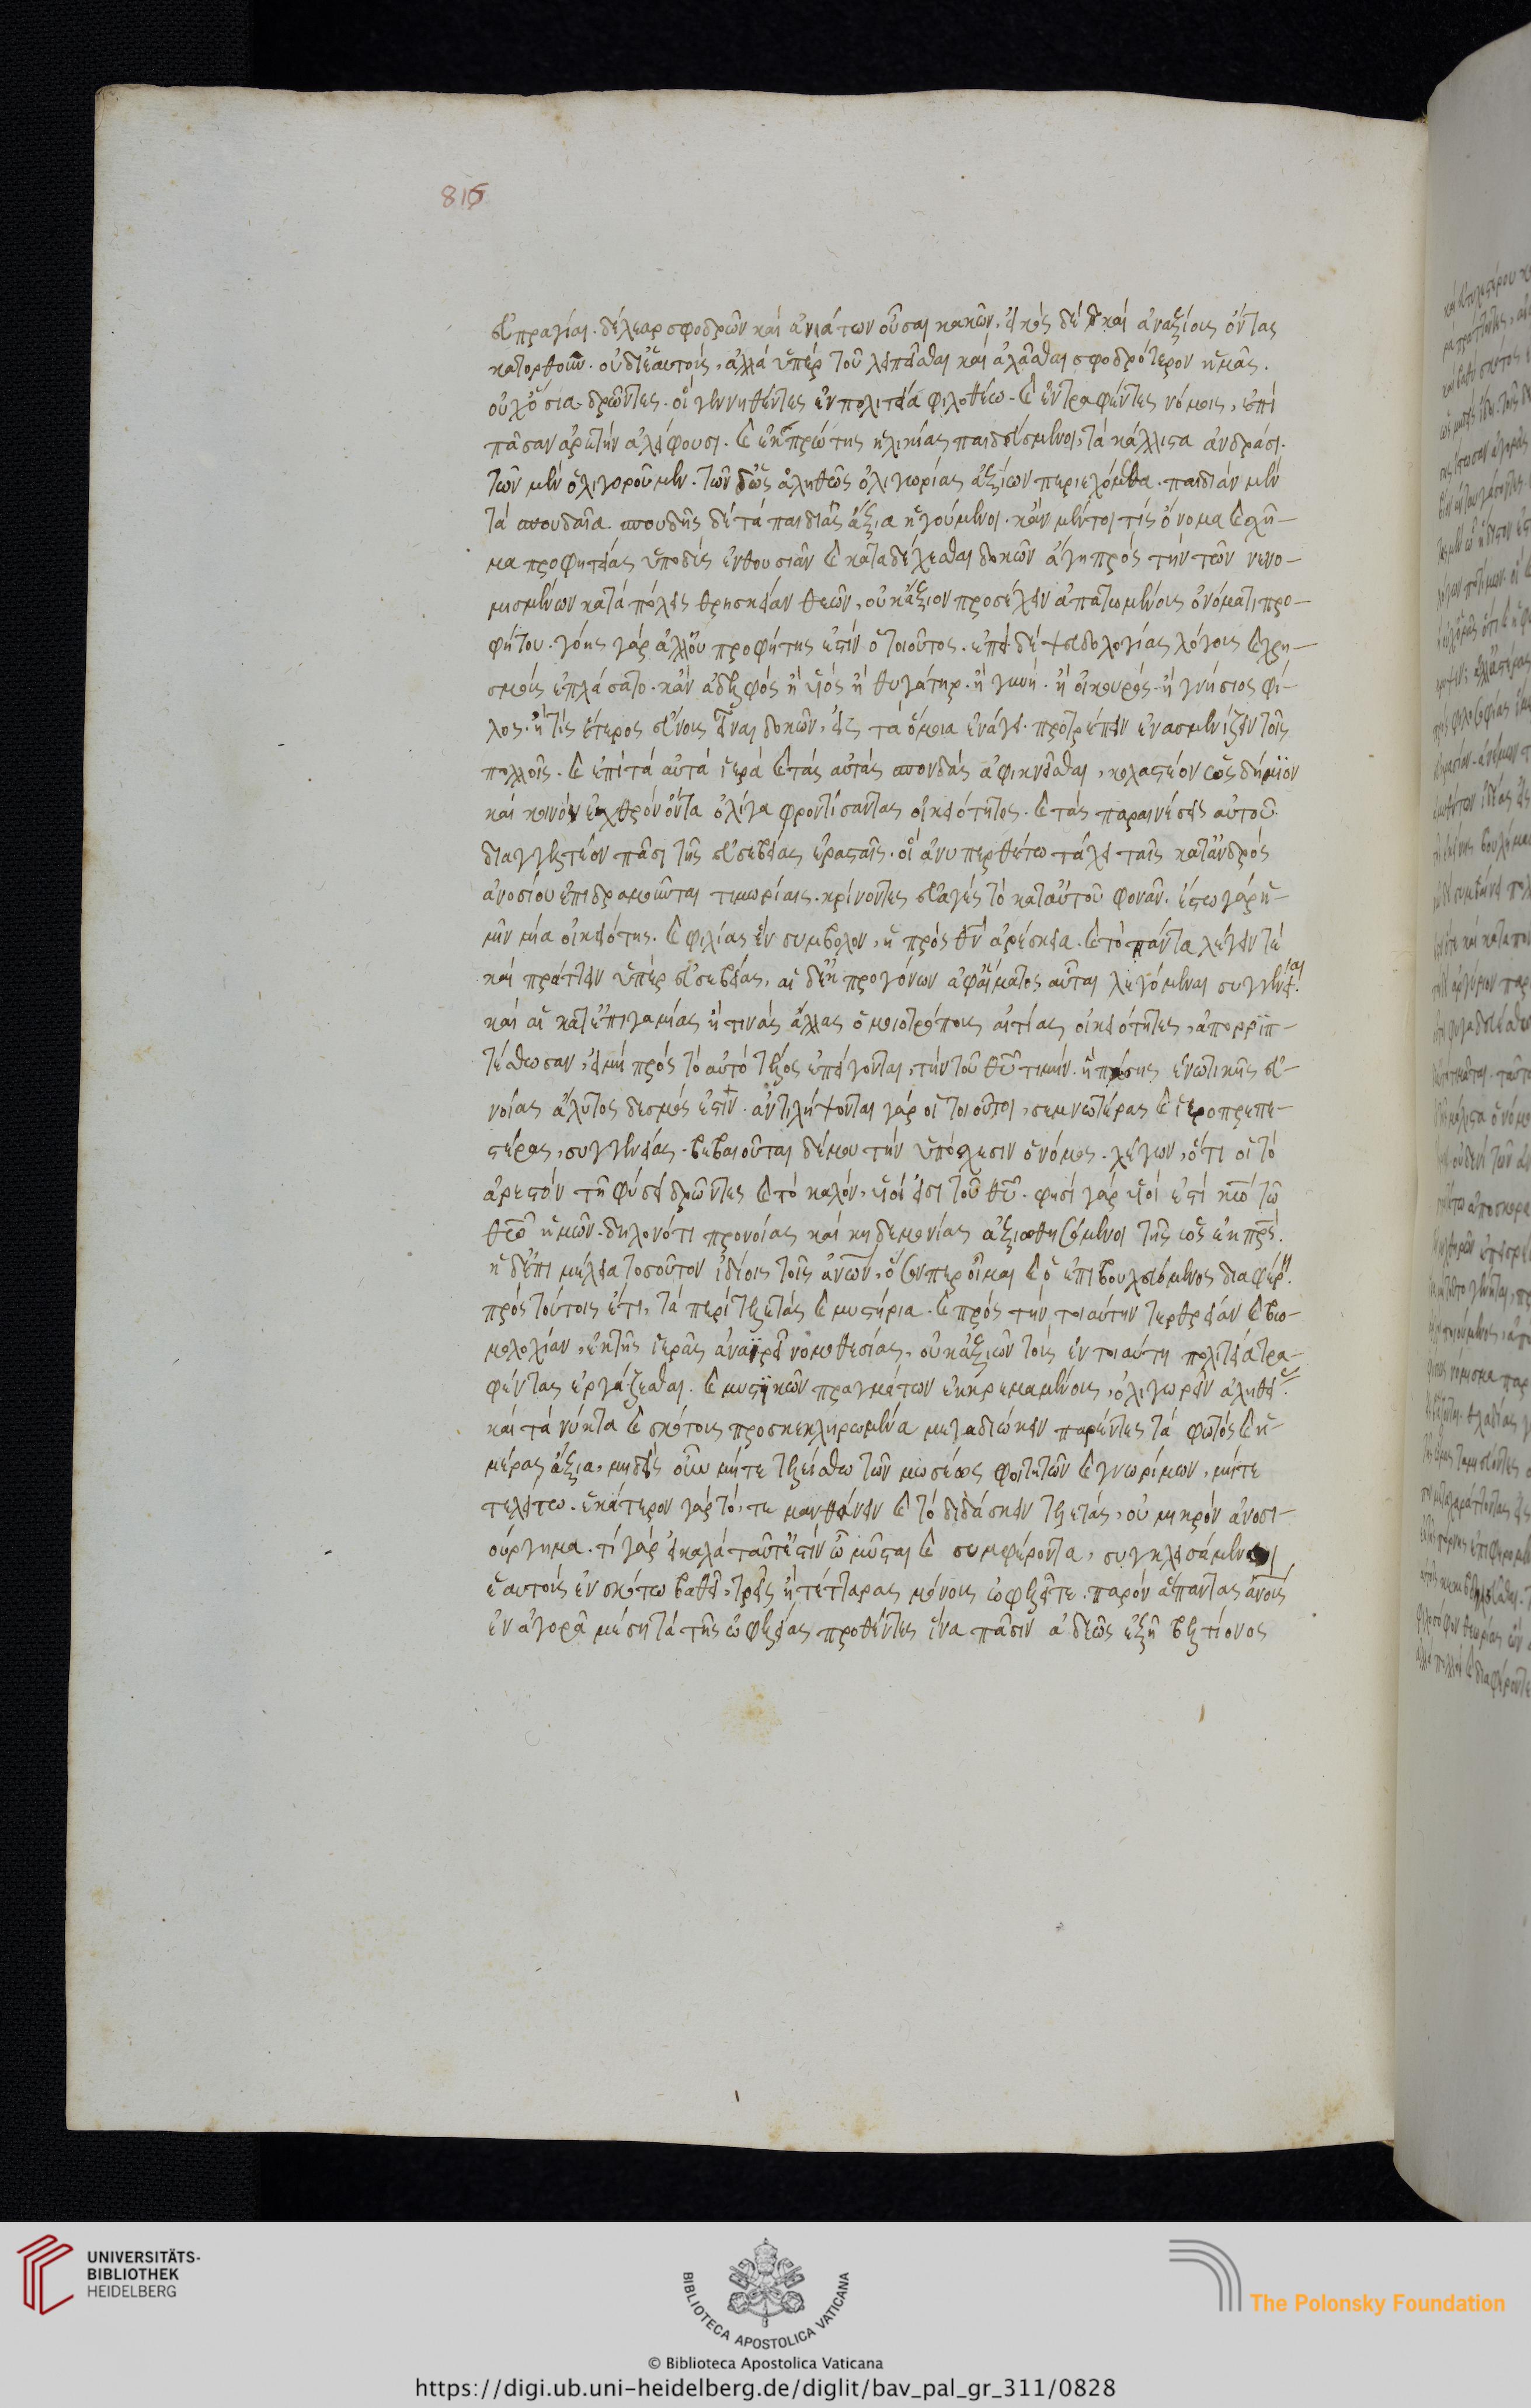 816
εὐπραγίαι. δέλεαρ σφοδρῶν καὶ ἀνιάτων οὖσαι κακῶν. εἰκὸς δὲ καὶ ἀναξίοις ὄντας
κατορθοῦν. οὐ δι' ἑαυτοὺς, ἀλλὰ ὑπὲρ τοῦ λυπεῖσθαι καὶ ἀλᾶσθαι σφοδρότερον ἡμᾶς.
οὐχ ὅσια δρῶντες. οἳ γεννηθέντες ἐν πολιτεία φιλοθέω. καὶ ἐντραφέντες νόμοις, ἐπὶ
πᾶσαν ἀρετὴν ἀλείφουσι. καὶ ἐκ πρώτης ἡλικίας παιδευόμενοι, τὰ κάλλιστα ἀνδράσι.
τῶν μὲν ὀλιγοροῦμεν. τῶν δ' ὡς ἀληθῶς ὀλιγωρίας ἀξίων περιεχόμεθα. παιδιὰν μὲν
τὰ σπουδαῖα. σπουδῆς δὲ τὰ παιδιᾶς ἄξια ἡγούμενοι. κἂν μέντοι τίς ὄνομα καὶ σχῆ-
μα προφητείας ὑποδὺς ἐνθουσιᾶν καὶ καταδέχεσθαι δοκῶν ἄγη πρὸς τὴν τῶν νενο-
μισμένων κατὰ πόλεις θρησκείαν θεῶν, οὐκ ἄξιον προσέχειν ἀπατωμένοις ὀνόματι προ-
φήτου. γόης γὰρ ἀλλ' οὐ προφήτης ἐστὶν ὁ τοιοῦτος. ἐπεὶ δὲ ψευδολογίας λόγοις καὶ χρη-
σμοὺς ἐπλάσατο. κἂν ἀδελφὸς ἢ υἱὸς ἢ θυγάτηρ. ἢ γυνὴ. ἢ οἰκουρὸς. ἢ γνήσιος φί-
λος. ἤ τις ἕτερος εὔνους εἶναι δοκῶν, εἰς τὰ ὅμοια ἐνάγει. προτρέπειν ἐνασμενίζειν τοῖς
πολλοῖς. καὶ ἐπὶ τὰ αὐτὰ ἱερὰ καὶ τὰς αὐτὰς σπονδὰς ἀφικνεῖσθαι, κολαστέον ὡς δήμιον
καὶ κοινὸν ἐχθρὸν ὄντα ὀλίγα φροντίσαντας οἰκειότητος. καὶ τὰς παραινέσεις αὐτοῦ
διαγγελτέον πᾶσι τῆς εὐσεβείας ἐρασταῖς. οἳ ἀνυπερθέτω τάχει ταῖς κατ' ἀνδρὸς
ἀνοσίου ἐπιδραμοῦνται τιμωρίαις. κρίνοντες εὐαγὲς τὸ κατ' αὐτοῦ φονᾶν. ἔστω γὰρ ἡ-
μῖν μία οἰκειότης. καὶ φιλίας ἓν σύμβολον, ἡ πρὸς θν ἀρέσκεια. καὶ τὸ πάντα λέγειν τὲ
καὶ πράττειν ὑπὲρ εὐσεβείας, αἱ δ' ἐκ προγόνων ἀφ' αἵματος αὗται λεγόμεναι συγγένειαι.
καὶ αἱ κατ' ἐπιγαμίας ἤ τινας ἄλλας ὁμοιοτρόπους αἰτίας οἰκειότητες, ἀπορριπ-
τέσθωσαν, εἰ μὴ πρὸς τὸ αὐτὸ τέλος ἐπείγονται, τὴν τοῦ θυ τιμὴν. ἣ πάσης ἑνωτικῆς εὐ-
νοίας ἄλυτος δεσμός ἐστιν. ἀντιλήψονται γὰρ οἱ τοιοῦτοι, σεμνωτέρας καὶ ἱεροπρεπε-
στέρας, συγγενείας. βεβαιοῦται δέ μου τὴν ὑπόσχεσιν ὁ νόμος. λέγων, ὅτι οἱ τὸ
ἀρεστὸν τῇ φύσει δρῶντες καὶ τὸ καλὸν, υἱοί εἰσι τοῦ θυ. φησὶ γὰρ υἱοί ἐστε κω τῶ
θεῶ ἡμῶν. δηλονότι προνοίας καὶ κηδεμονίας ἀξιωθησόμενοι τῆς ὡς ἐκ πρς.
ἡ δ' ἐπιμέλεια τοσοῦτον ἰδίοις τοῖς ἀνων, ὅσονπερ οἶμαι καὶ ὁ ἐπιβουλευόμενος διαφέρει.
πρὸς τούτοις ἔτι, τὰ περὶ τελετὰς καὶ μυστήρια. καὶ πρὸς τὴν τοιαύτην τερθρείαν καὶ βω-
μολοχίαν, ἐκ τῆς ἱερᾶς ἀναιρεῖ νομοθεσίας, οὐκ ἀξιῶν τοὺς ἐν τοιαύτη πολιτεία τρα-
φέντας ἐργάζεσθαι. καὶ μυστικῶν πραγμάτων ἐκκρεμαμένους, ὀλιγωρεῖν ἀληθείας.
καὶ τὰ νύκτα καὶ σκότους προσκεκληρωμένα μεταδιώκειν παρέντες τὰ φωτὸς καὶ ἡ-
μέρας ἄξια, μηδεὶς οὖν μήτε τελείσθω τῶν μωσέως φοιτητῶν καὶ γνωρίμων, μήτε
τελείτω. ἑκάτερον γὰρ τό, τε μανθάνειν καὶ τὸ διδάσκειν τελετὰς, οὐ μικρὸν ἀνοσι-
ούργημα. τί γὰρ εἰ καλὰ ταῦτ' ἐστὶν ὦ μύσται καὶ συμφέροντα, συγκλεισάμενοι
ἑαυτοὺς ἐν σκότω βαθεῖ, τρεῖς ἢ τέτταρας μόνους ὠφελεῖτε. παρὸν ἅπαντας ἀνους
ἐν ἀγορᾷ μέση τὰ τῆς ὠφελείας προθέντες ἵνα πᾶσιν ἀδεῶς ἐξῇ βελτίονος
UNIVERSITÄTS-
BIBLIOTHEK
HEIDELBERG
BIBLIOTECA APOSTOLICA VATICANA
The Polonsky Foundation
© Biblioteca Apostolica Vaticana
https://digi.ub.uni-heidelberg.de/diglit/bav_pal_gr_311/0828